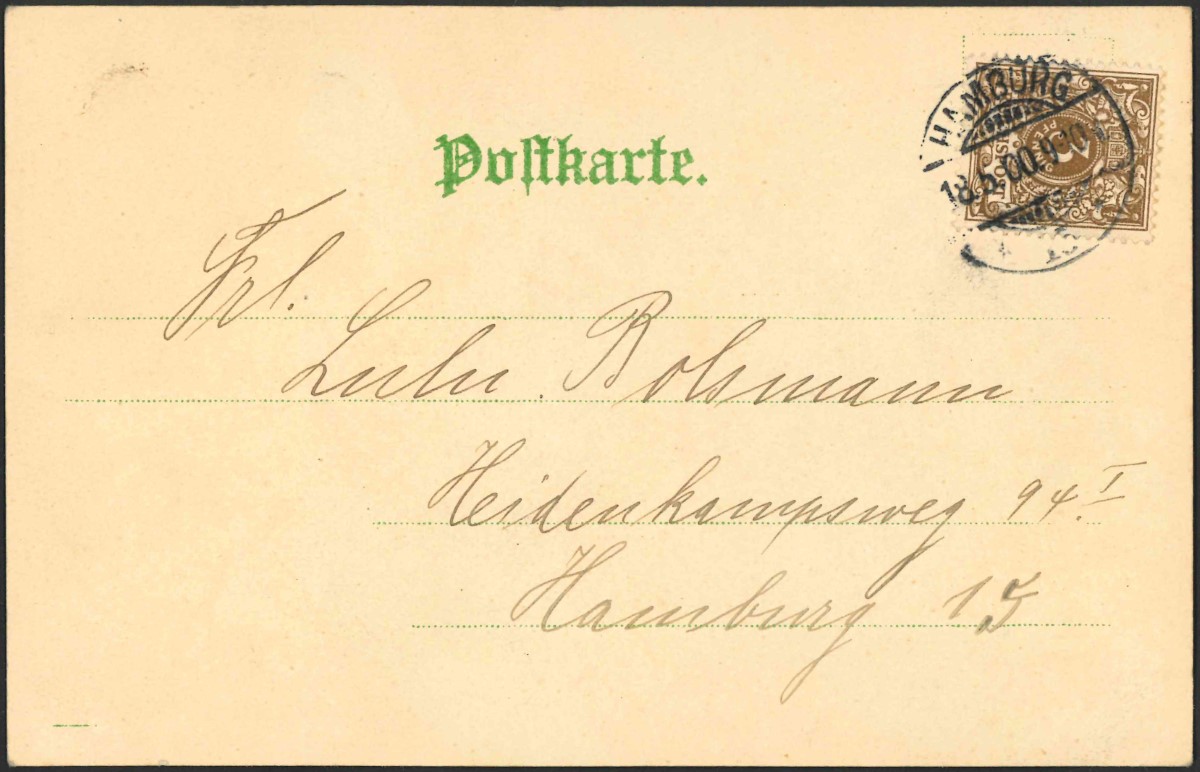 Postkarte.
HAMBURG
18.5.00.9-10
Frl.
Lulu Bolsmann
Heidenkampsweg 94 I.
Hamburg 15